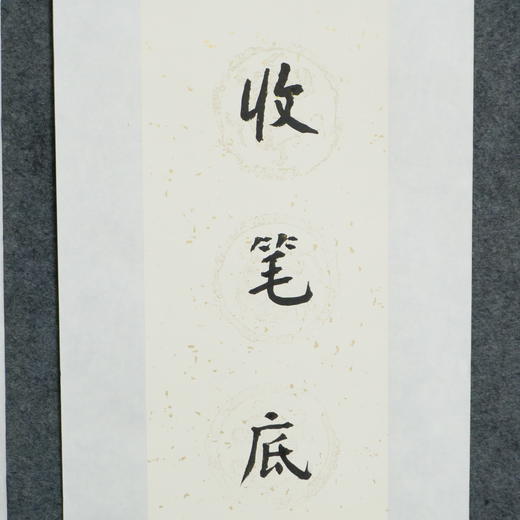 收笔底